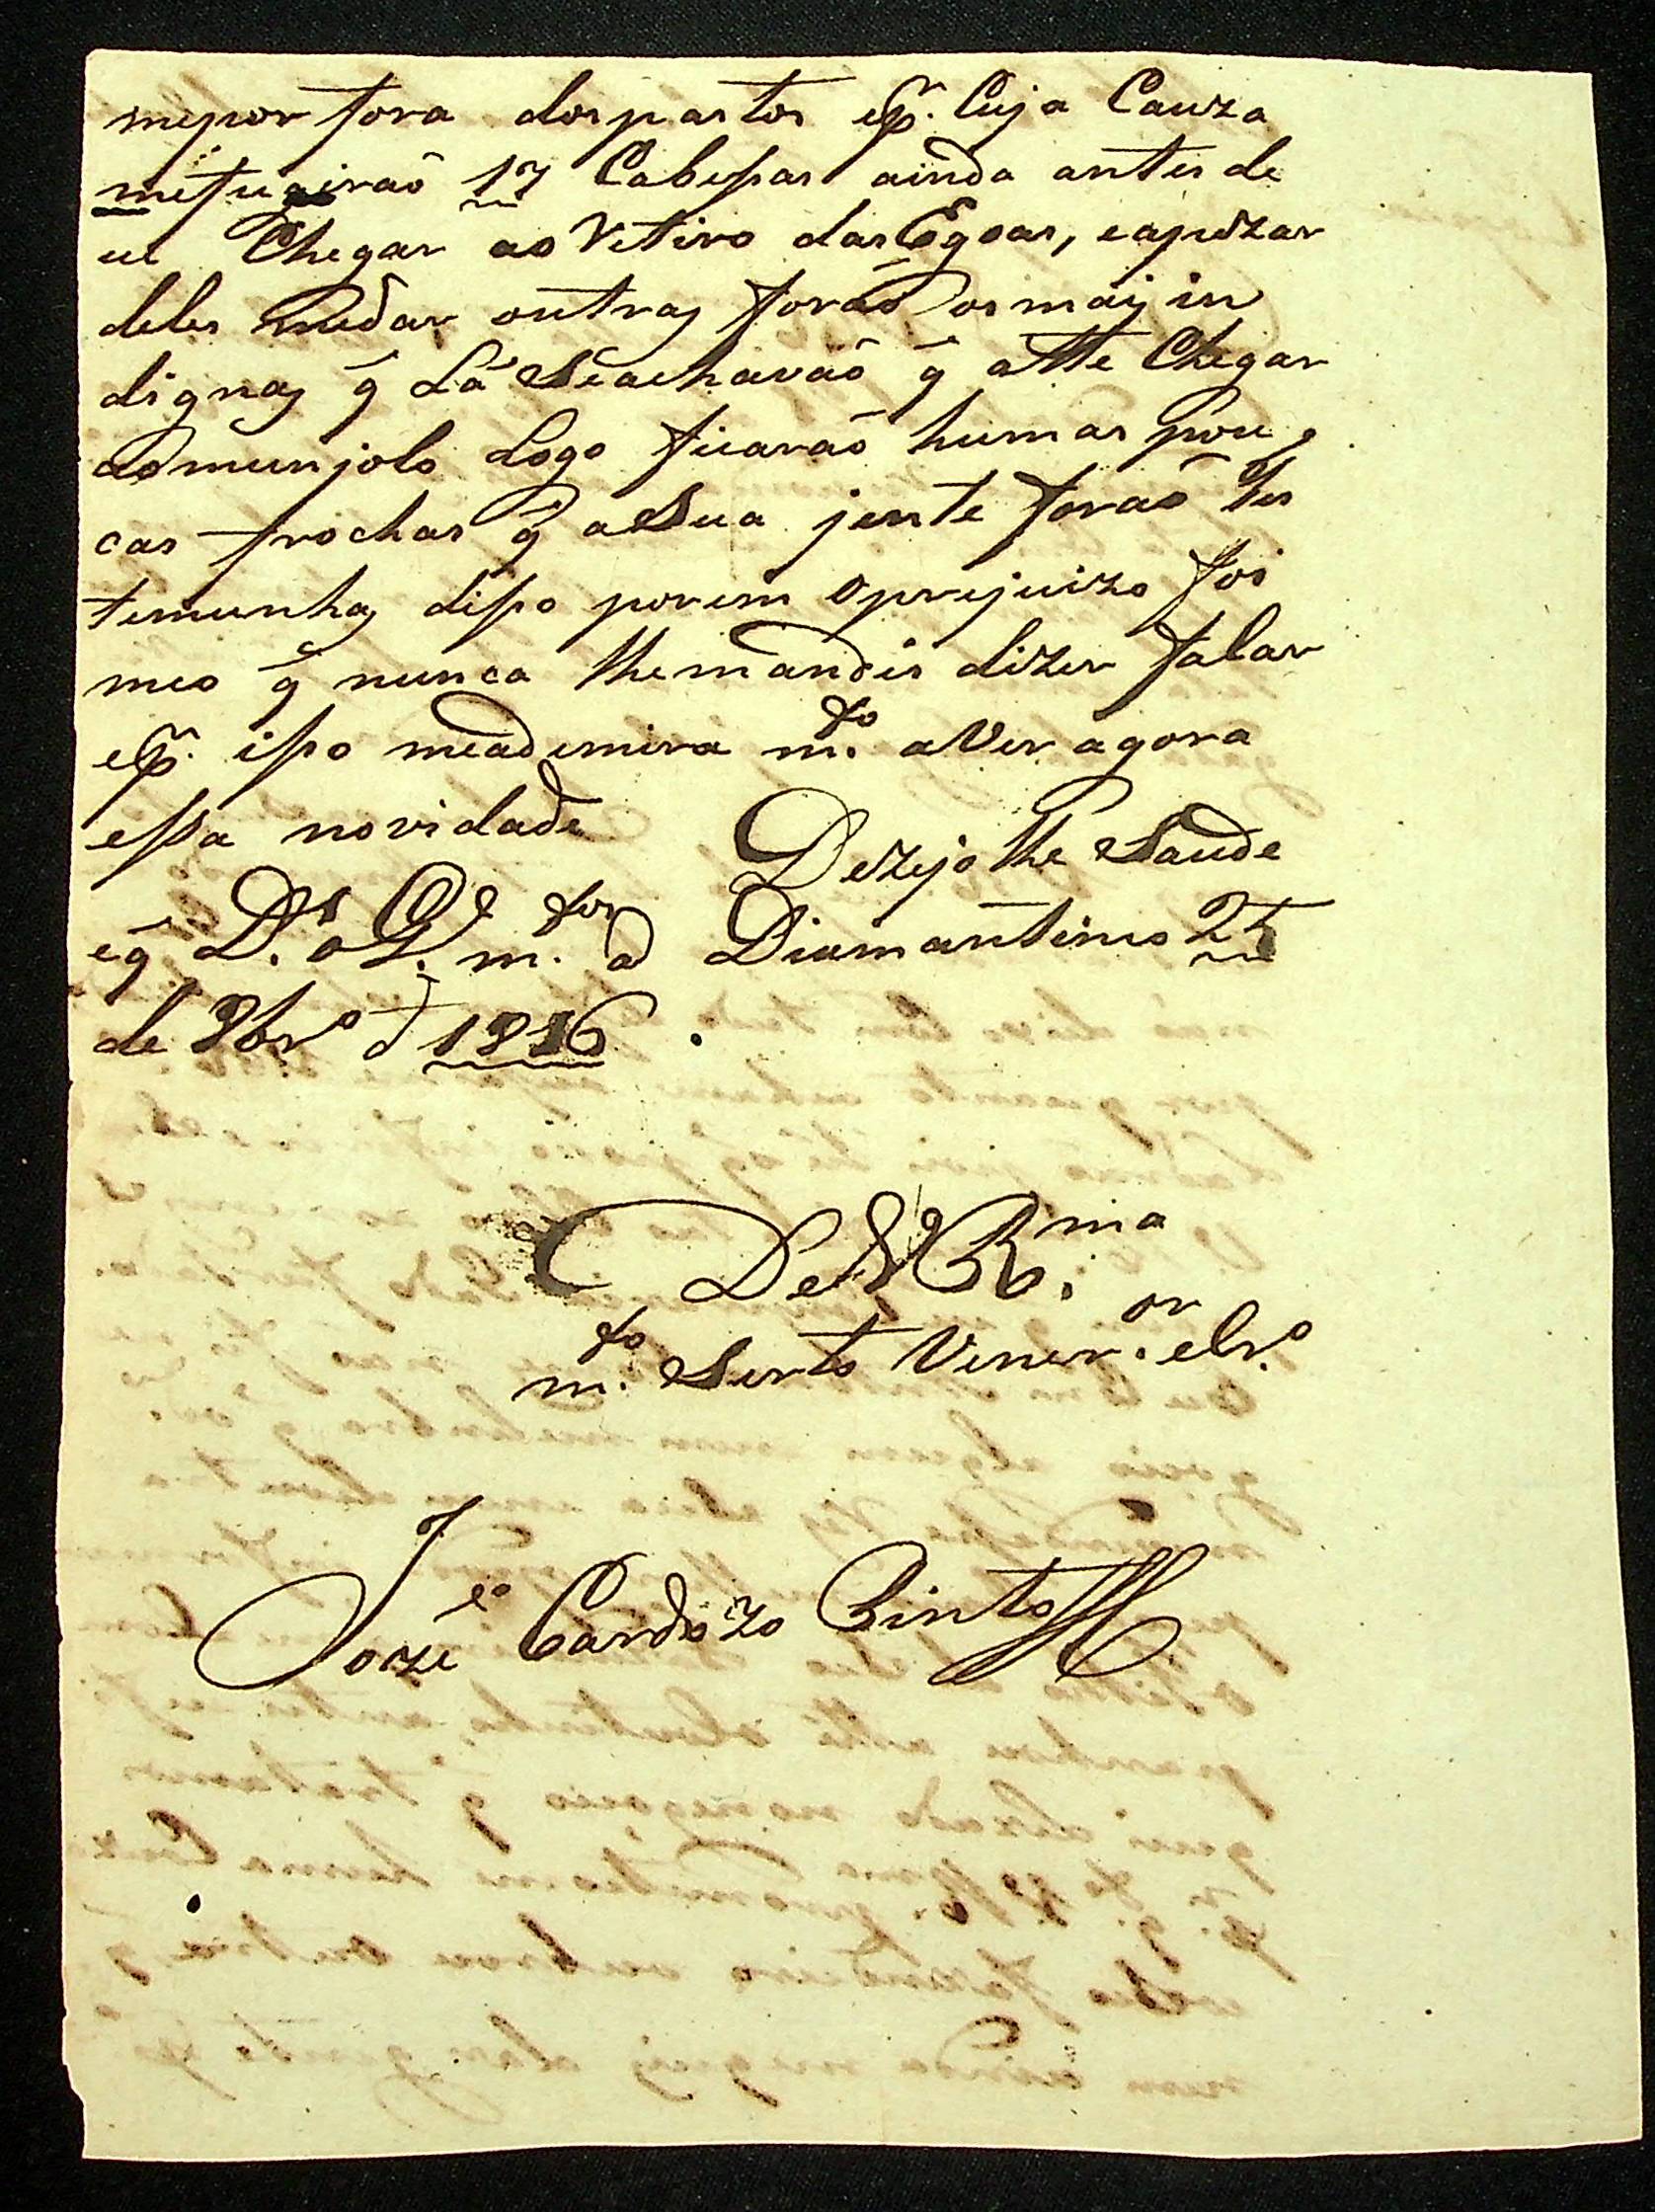 mepor fora dos pastos ep̃. Cuja Cauza
mefugiraõ 17 Cabessas ainda antes de
eu Chegar ao Retiro das Egoas, eapezar
deles medar outras foraõ as mais in
dignas q̃ Lá Seachavaõ q̃ atte Chegar
ao munjolo Logo ficaraõ humas pou
cas frochas q̃ aSua jente foraõ tes
temunhas disso porem oprejuizo foi
meo q̃ nunca lhemandei dizer falar
ep̃. isso meademira m.to aVer agora
essa novidade Dezejo lhe Saude
eq̃ D.s G.e m. a Diamantino 25
de 8br.o d 1816.
De V R.ma
m.to Serto Vener.or eCr.o
Joze Cardozo Pinto